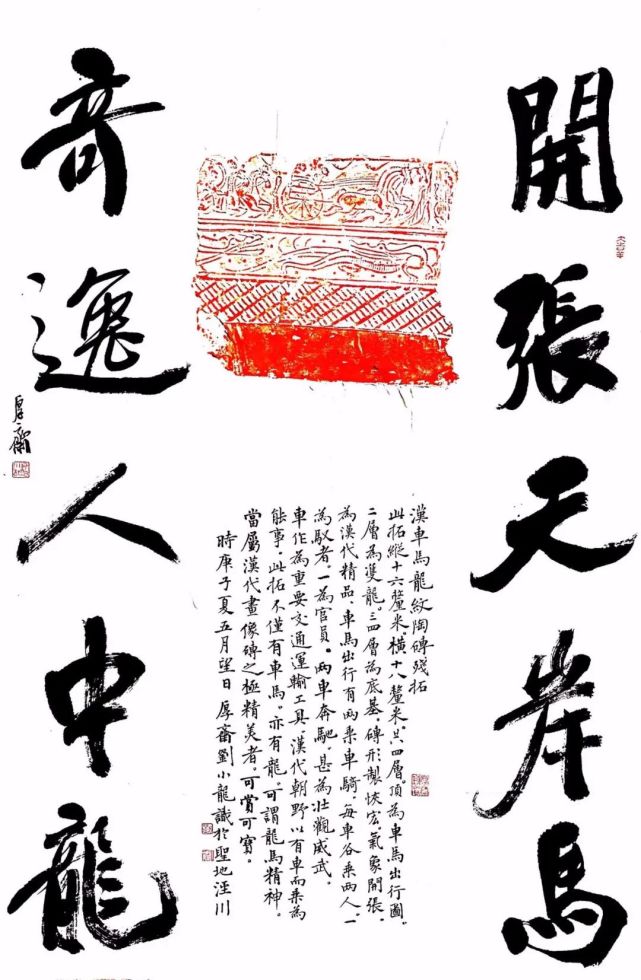 開張天岸馬
漢車馬龍紋陶磚殘拓
此拓縱十六釐米橫十八釐米共四層頂為車馬出行圖。
二層為雙龍。三四層為底基磚形製恢宏。氣象開張。
為漢代精品。車馬出行有兩乘車騎。每車各乘兩人。一
為馭者。一為官員。兩車奔馳。甚為壯觀威武。
車作為重要交通運輸工具。漢代朝野以有車而乘為
能事。此拓不僅有車馬。亦有龍。可謂龍馬精神。
當屬漢代畫像磚之極精美者。可賞可寶。
時庚子夏五月望日厚齋劉小龍識於聖地涇川
奇逸人中龍
厚齋